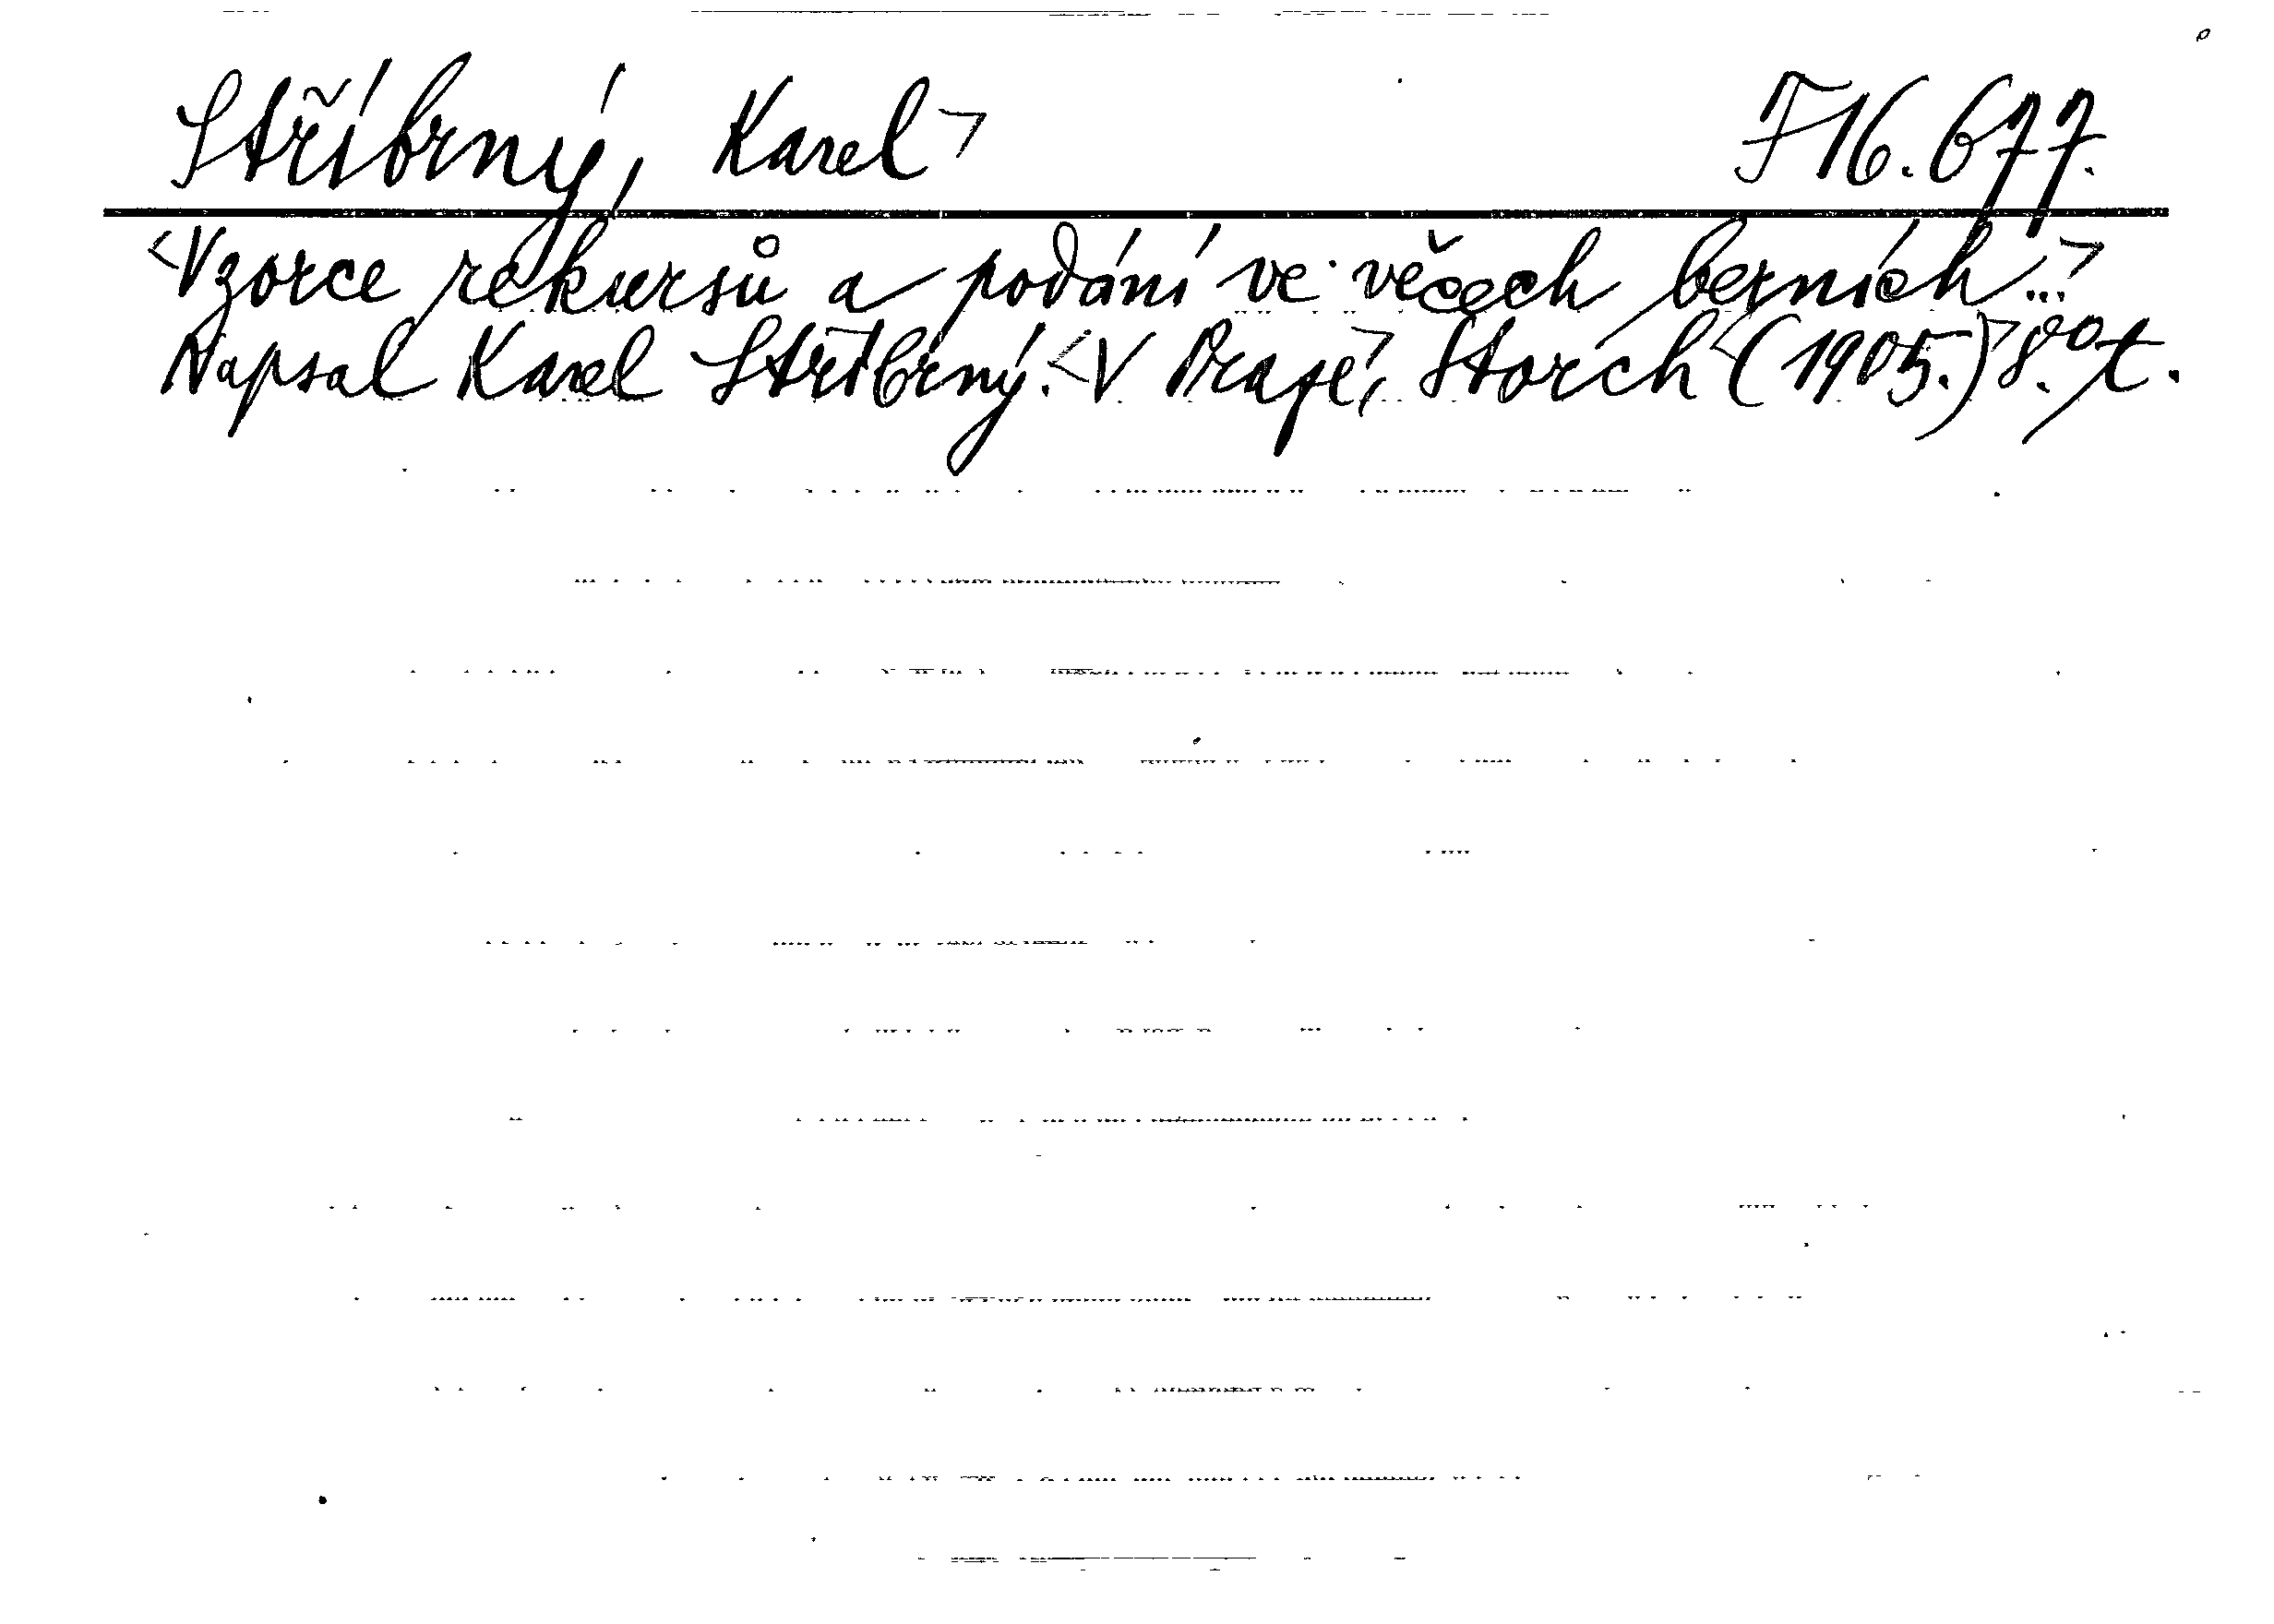 Stříbrný, Karel> F 16.677.
<Vzorce rekursů a podání ve věcech berních...>
Napsal Karel Stříbrný. <V Praze>, Storch <(1905.)> 8.° t.